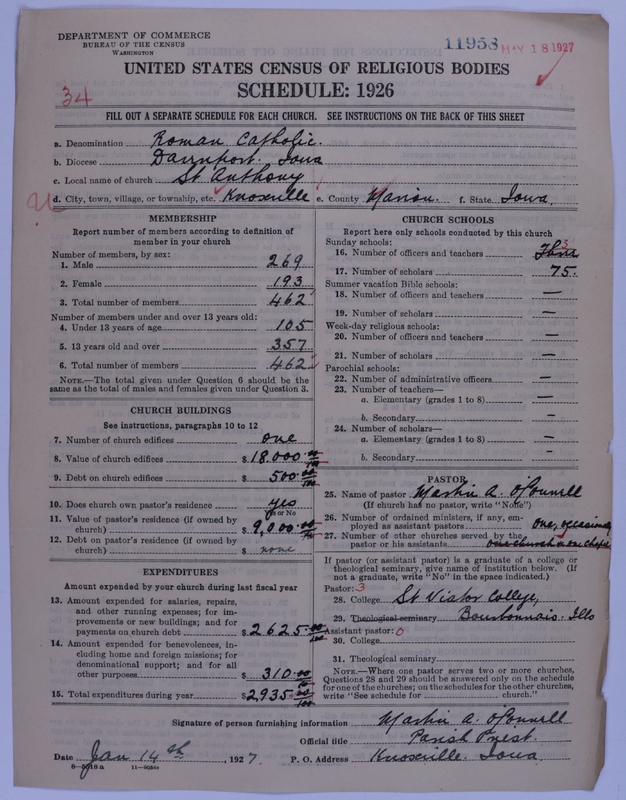 DEPARTMENT OF COMMERCE
BUREAU OF THE CENSUS
WASHINGTON
11953 MAY 18 1927
UNITED STATES CENSUS OF RELIGIOUS BODIES
SCHEDULE: 1926
34
FILL OUT A SEPARATE SCHEDULE FOR EACH CHURCH. SEE INSTRUCTIONS ON THE BACK OF THIS SHEET
a. Denomination Roman Catholic.
b. Diocese Davenport. Iowa
c. Local name of church St Anthony
d. City, town, village, or township, etc. Knoxville e. County Marion. f. State Iowa.
MEMBERSHIP
Report number of members according to definition of
member in your church
Number of members, by sex:
1. Male 269
2. Female 193
3. Total number of members 462
Number of members under and over 13 years old:
4. Under 13 years of age 105
5. 13 years old and over 357
6. Total number of members 462
NOTE.—The total given under Question 6 should be
same as the total of males and females given under Question 3.
CHURCH BUILDINGS
See instructions, paragraphs 10 to 12
7. Number of church edifices one
8. Value of church edifices $ 18,000.00/100
9. Debt on church edifices $ 500.00/100
10. Does church own pastor's residence yes
Yes or No
11. Value of pastor's residence (if owned by
church) $ 9,000.00/100
12. Debt on pastor's residence (if owned by
church) $ none
EXPENDITURES
Amount expended by your church during last fiscal year
13. Amount expended for salaries, repairs,
and other running expenses; for im-
provements or new buildings; and for
payments on church debt $ 2625.00/100
14. Amount expended for benevolences, in-
cluding home and foreign missions; for
denominational support; and for all
other purposes $ 310.00/100
15. Total expenditures during year $ 2935.00/100
CHURCH SCHOOLS
Report here only schools conducted by this church
Sunday schools:
16. Number of officers and teachers 3
17. Number of scholars 75.
Summer vacation Bible schools:
18. Number of officers and teachers —
19. Number of scholars —
Week-day religious schools:
20. Number of officers and teachers —
21. Number of scholars —
Parochial schools:
22. Number of administrative officers —
23. Number of teachers—
a. Elementary (grades 1 to 8) —
b. Secondary —
24. Number of scholars—
a. Elementary (grades 1 to 8) —
b. Secondary —
PASTOR
25. Name of pastor Martin A. O'Connell
(If church has no pastor, write "None")
26. Number of ordained ministers, if any, em-
ployed as assistant pastors one, occasionally
27. Number of other churches served by the
pastor or his assistants one church
If pastor (or assistant pastor) is a graduate of a college or
theological seminary, give name of institution below. (If
not a graduate, write "No" in the space indicated.)
Pastor: 3
28. College St Viator College,
29. Theological seminary Bourbonnais. Ills
Assistant pastor: 0
30. College
31. Theological seminary
NOTE.—Where one pastor serves two or more churches,
Questions 28 and 29 should be answered only on the schedule
for one of the churches; on the schedules for the other churches,
write "See schedule for church."
Signature of person furnishing information Martin A. O'Connell
Official title Parish Priest.
Date Jan 14th, 1927. P. O. Address Knoxville, Iowa
11—9056a